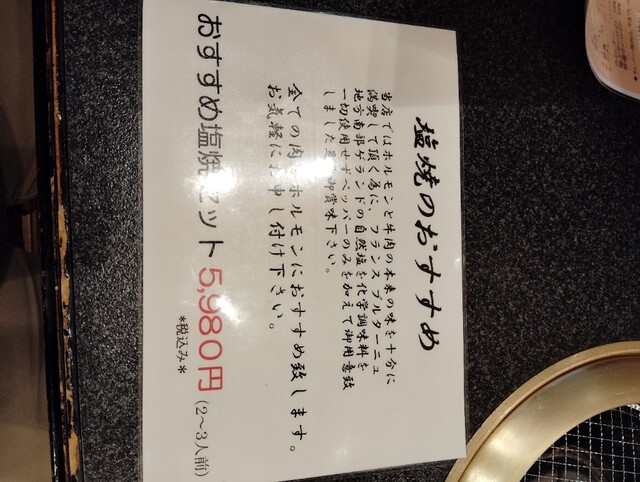 塩焼のおすすめ
当店ではホルモンと牛肉の本来の味を十分に
満喫して頂く為に、フランス ブルターニュ
地方南部ゲランドの自然塩を化学調味料を
一切使用せずペッパーのみを加えて御用意致
しました是 御賞味下さい。
全ての肉 ホルモンにおすすめ致します。
お気軽にお申し付け下さい。
おすすめ塩焼セット5,980円(2〜3人前)
*税込み*